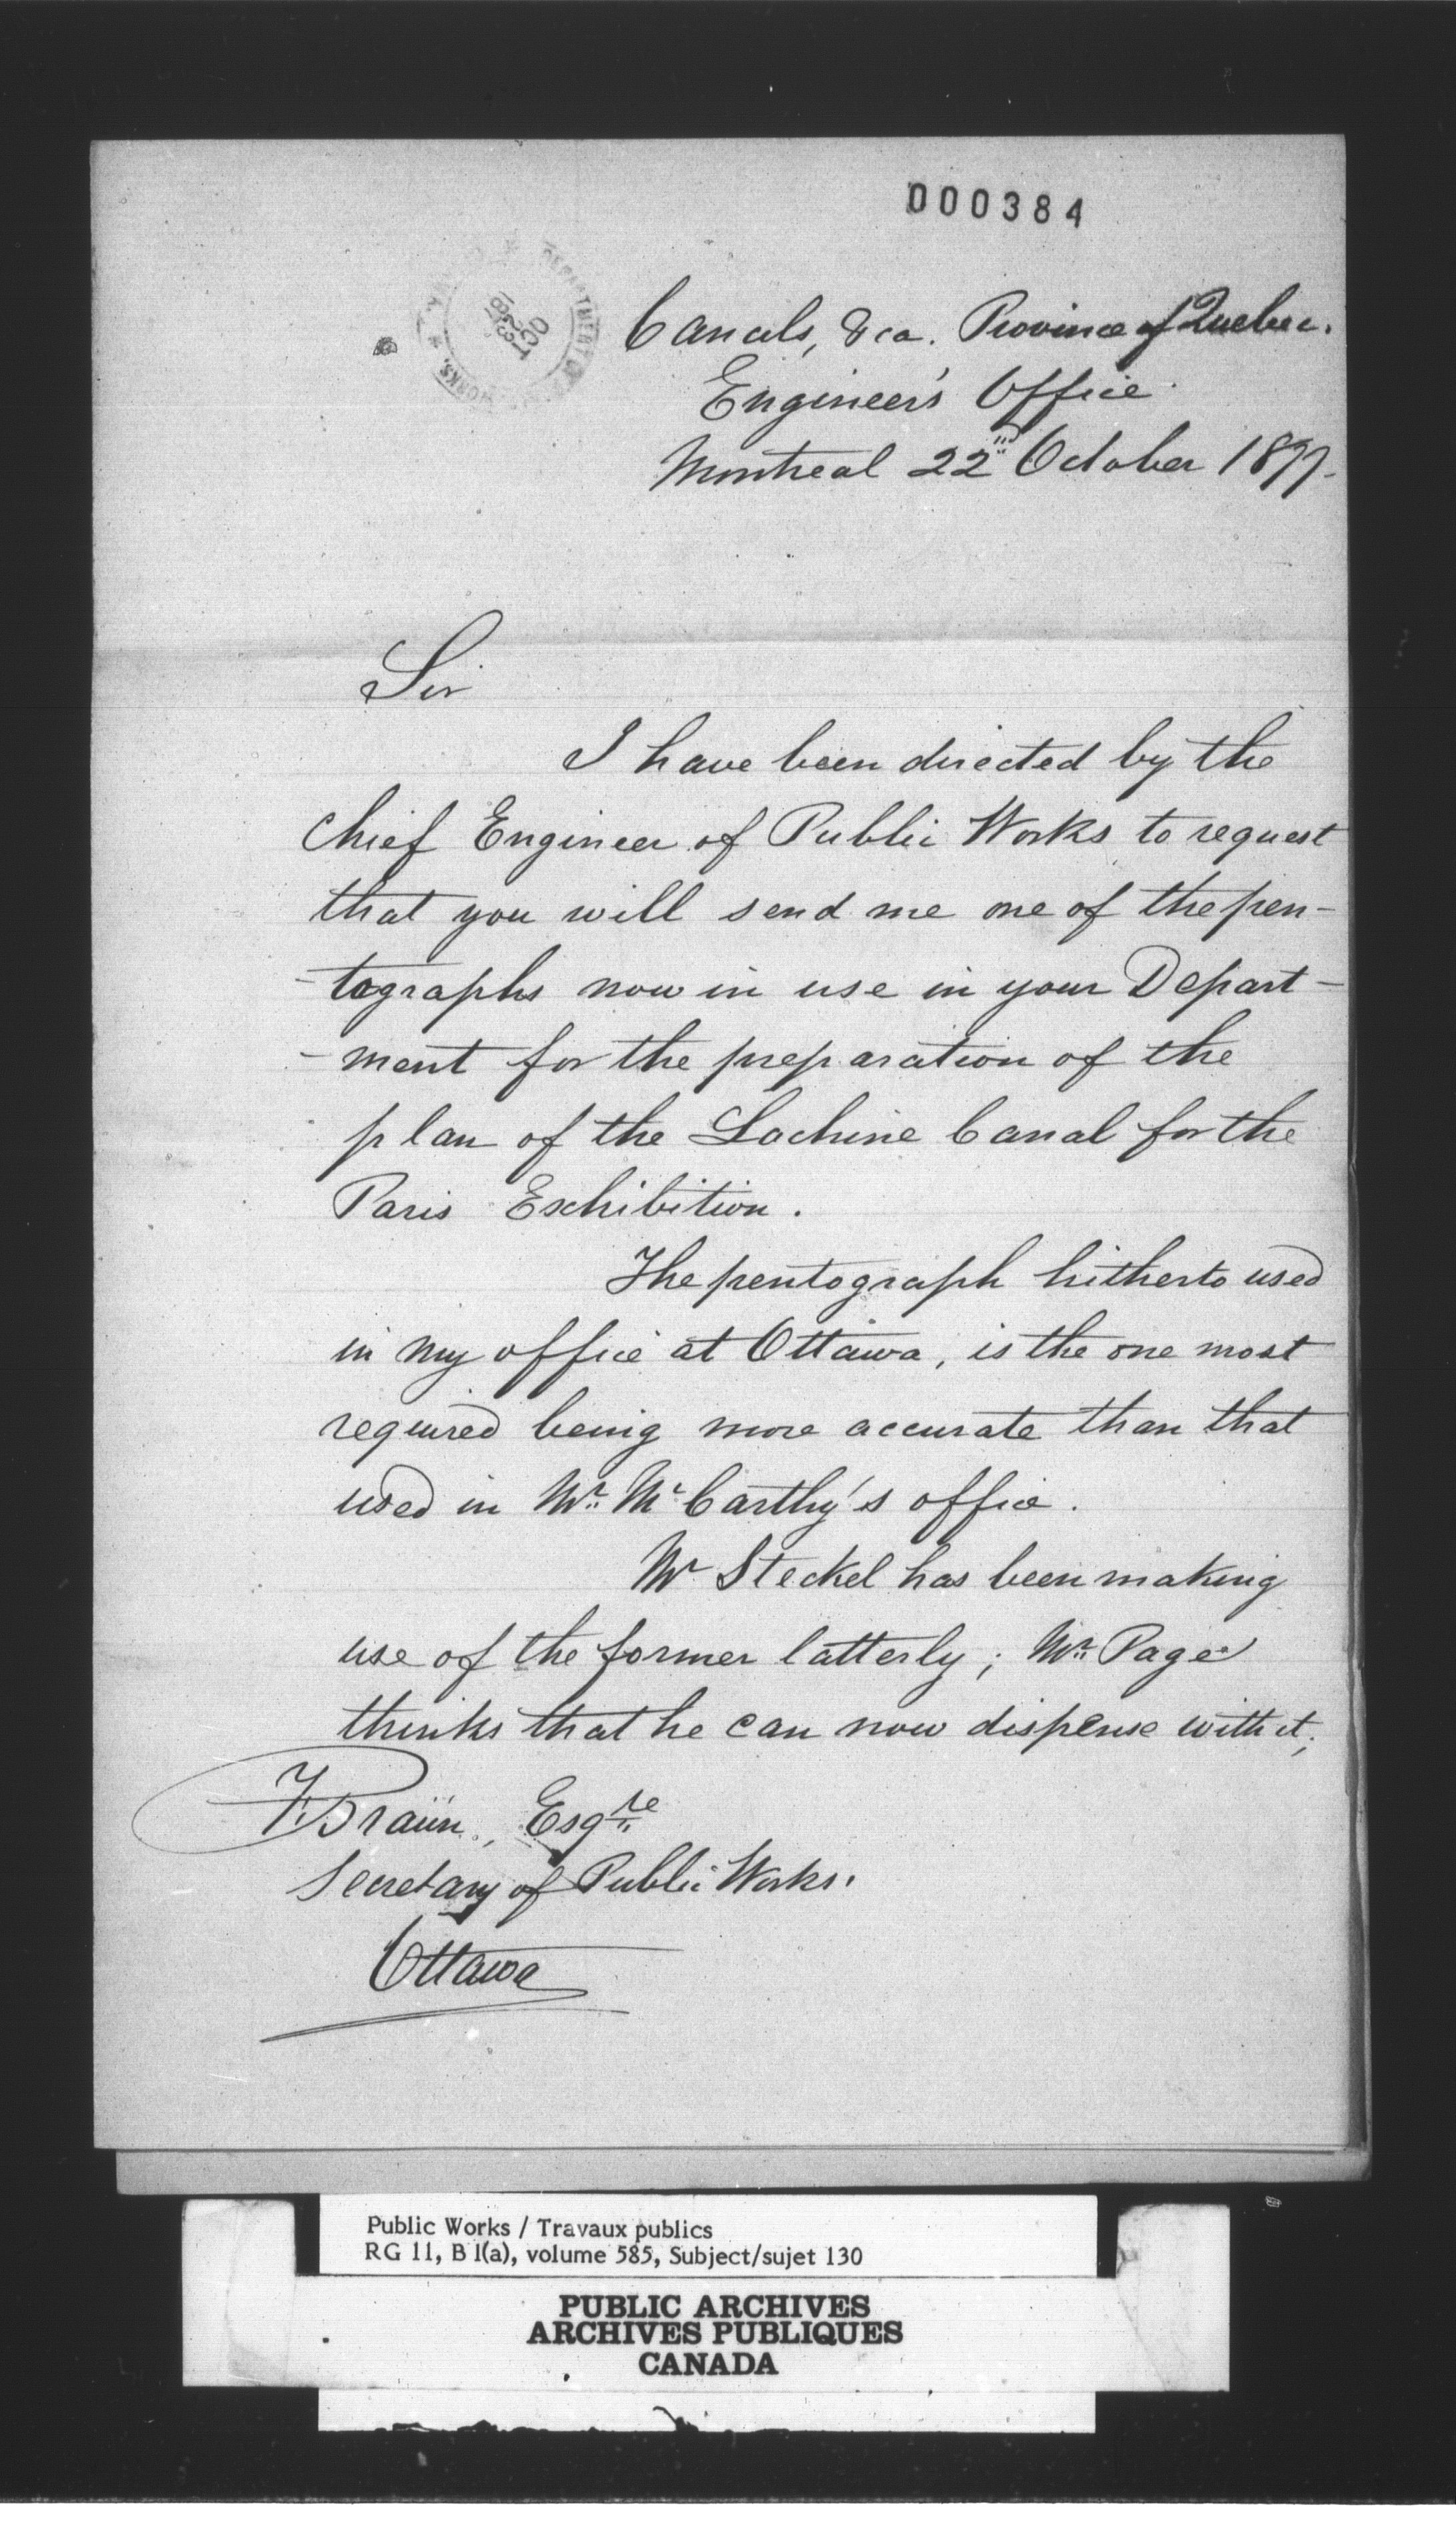 000384
DEPARTMENT OF
WORKS.
OCT
23
Canals, &ca. Province of Quebec.
Engineer's Office
Montreal 22nd October 1877.
Sir
I have been directed by the
Chief Engineer of Public Works to request
that you will send me one of the pen-
-tographs now in use in your Depart-
-ment for the preparation of the
plan of the Lachine Canal for the
Paris Exhibition.
The pentograph hitherto used
in my office at Ottawa, is the one most
required being more accurate than that
used in Mr. McCarthy's office.
Mr Steckel has been making
use of the former latterly; Mr. Page
thinks that he can now dispense with it;
F. Braün, Esqre
Secretary of Public Works.
Ottawa
Public Works / Travaux publics
RG 11, B 1(a), volume 585, Subject/sujet 130
PUBLIC ARCHIVES
ARCHIVES PUBLIQUES
CANADA